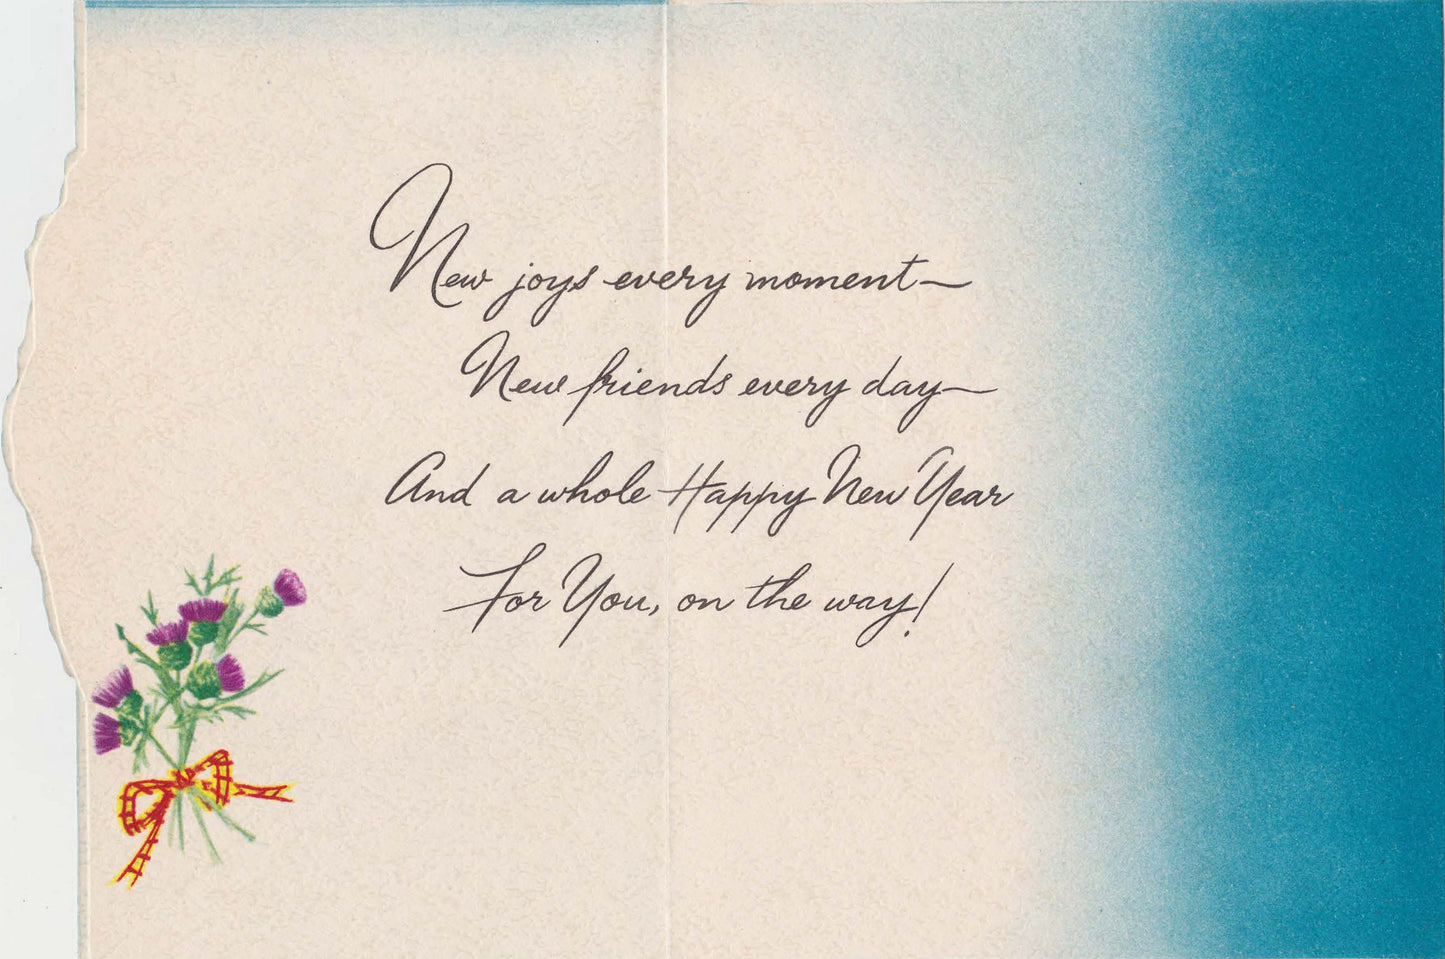 New joys every moment—
New friends every day—
And a whole Happy New Year
For You, on the way!